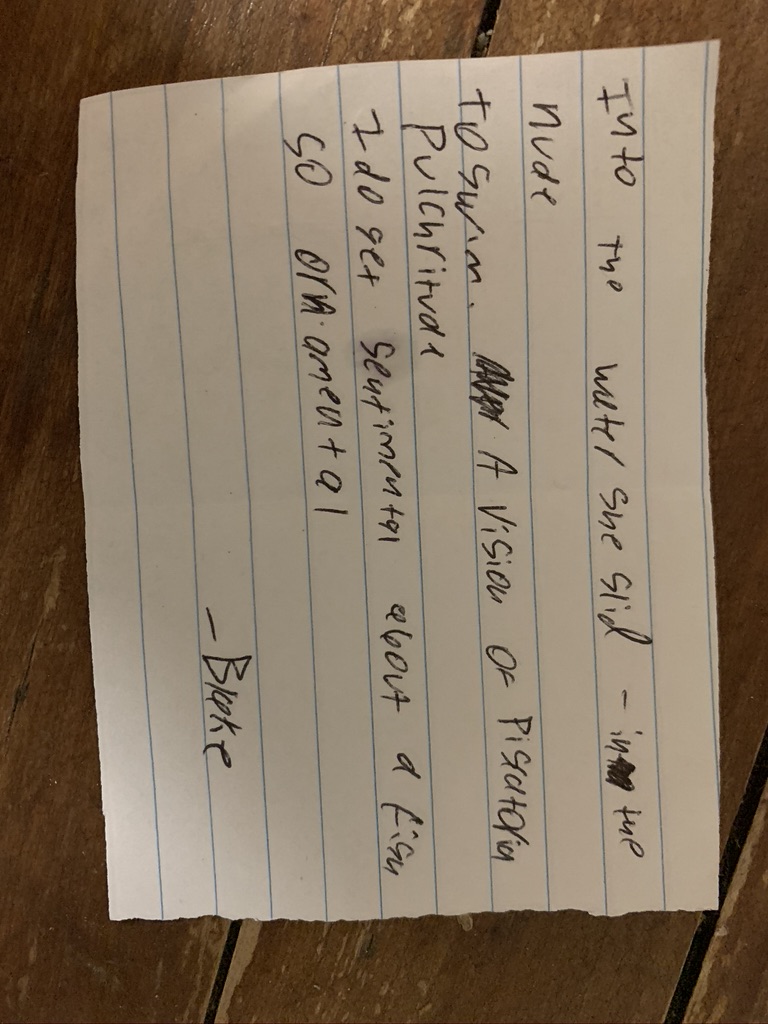 Into the water she slid - in the
nude
to swim. A vision of Piscatorin
Pulchritude
I do get sentimental about a fish
so ornamental
- Blake